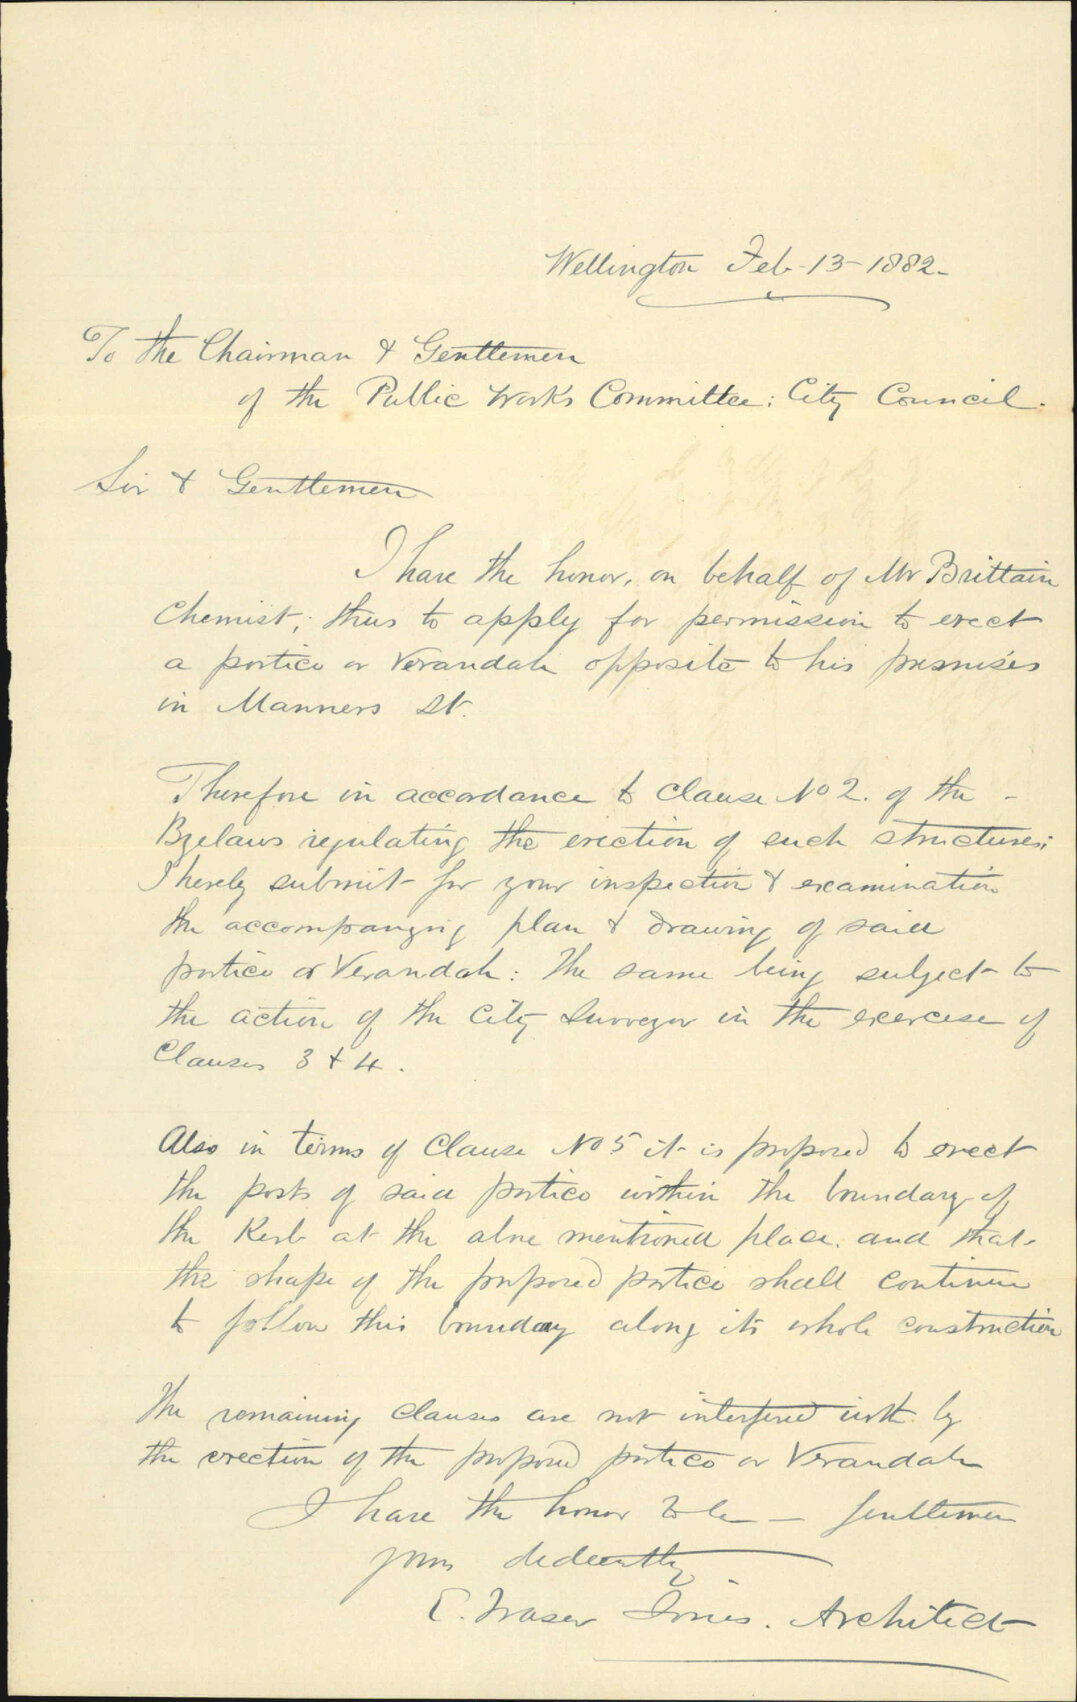 Wellington Feb-13-1882-
To the Chairman & Gentlemen
of the Public Works Committee: City Council.
Sir & Gentlemen
I have the honor, on behalf of Mr Brittain
Chemist; thus to apply for permission to erect
a portico or Verandah opposite to his premises
in Manners St.
Therefore in accordance to Clause No 2. of the -
Byelaws regulating the erection of such structures;
I hereby submit for your inspection & examination
the accompanying plan & drawing of said
portico or Verandah: the same being subject to
the action of the City Surveyor in the exercise of
Clauses 3 & 4.
Also in terms of Clause No 5 it is proposed to erect
the posts of said portico within the boundary of
the Kerb at the above mentioned place. and that
the shape of the proposed portico shall continue
to follow this boundary along its whole construction
The remaining clauses are not interfered with by
the erection of the proposed portico or Verandah
I have the honor to be - Gentlemen
yours
E. Fraser Jones. Architect